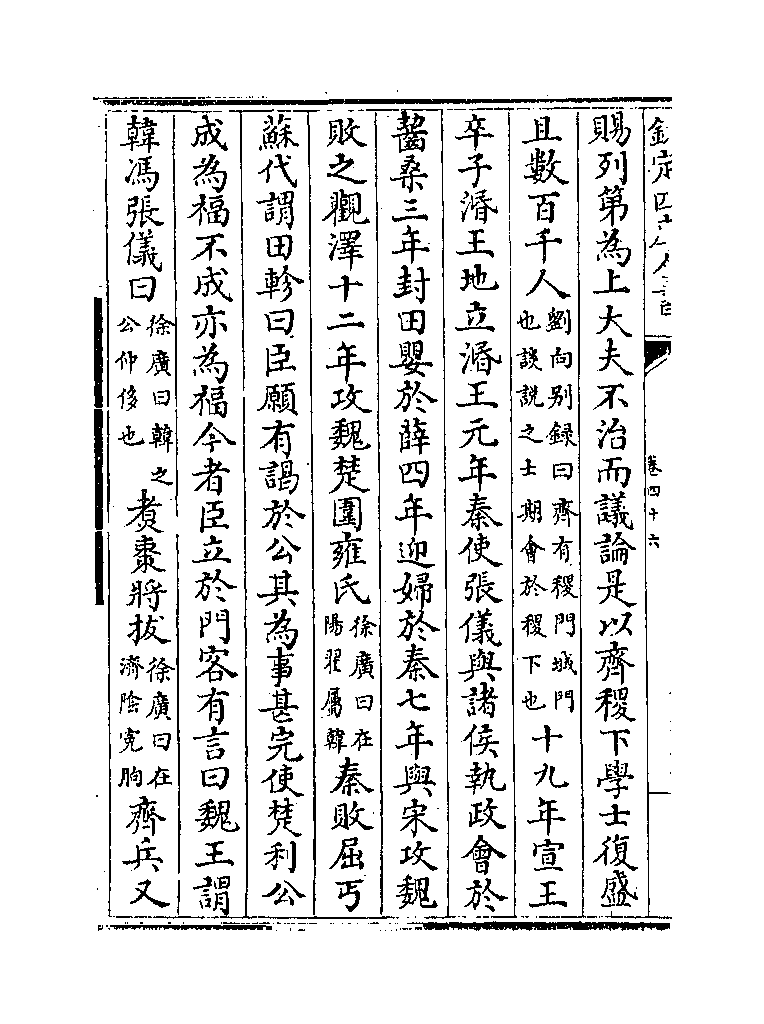 賜列第為上大夫不治而議論是以齊稷下學士復盛
且數百千人劉向别録曰齊有稷門城門也談說之士期會於稷下也十九年宣王
卒子湣王地立湣王元年秦使張儀與諸侯執政會於
齧桑三年封田嬰於薛四年迎婦於秦七年與宋攻魏
敗之觀澤十二年攻魏楚圍雍氏徐廣曰在陽翟屬韓秦敗屈丐
蘇代謂田軫曰臣願有謁於公其為事甚完使楚利公
成為福不成亦為福今者臣立於門客有言曰魏王謂
韓馮張儀曰徐廣曰韓之公仲侈也煑棗將拔徐廣曰在濟陰宛朐齊兵又
卷四十六